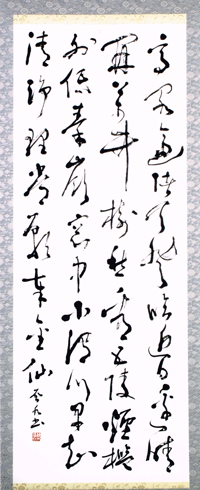 高閣逼諸天登臨近日邊晴
開萬井樹愁看五陵煙檻
外低秦嶺窓中小渭川早知
清浄理常願奉金仙 書